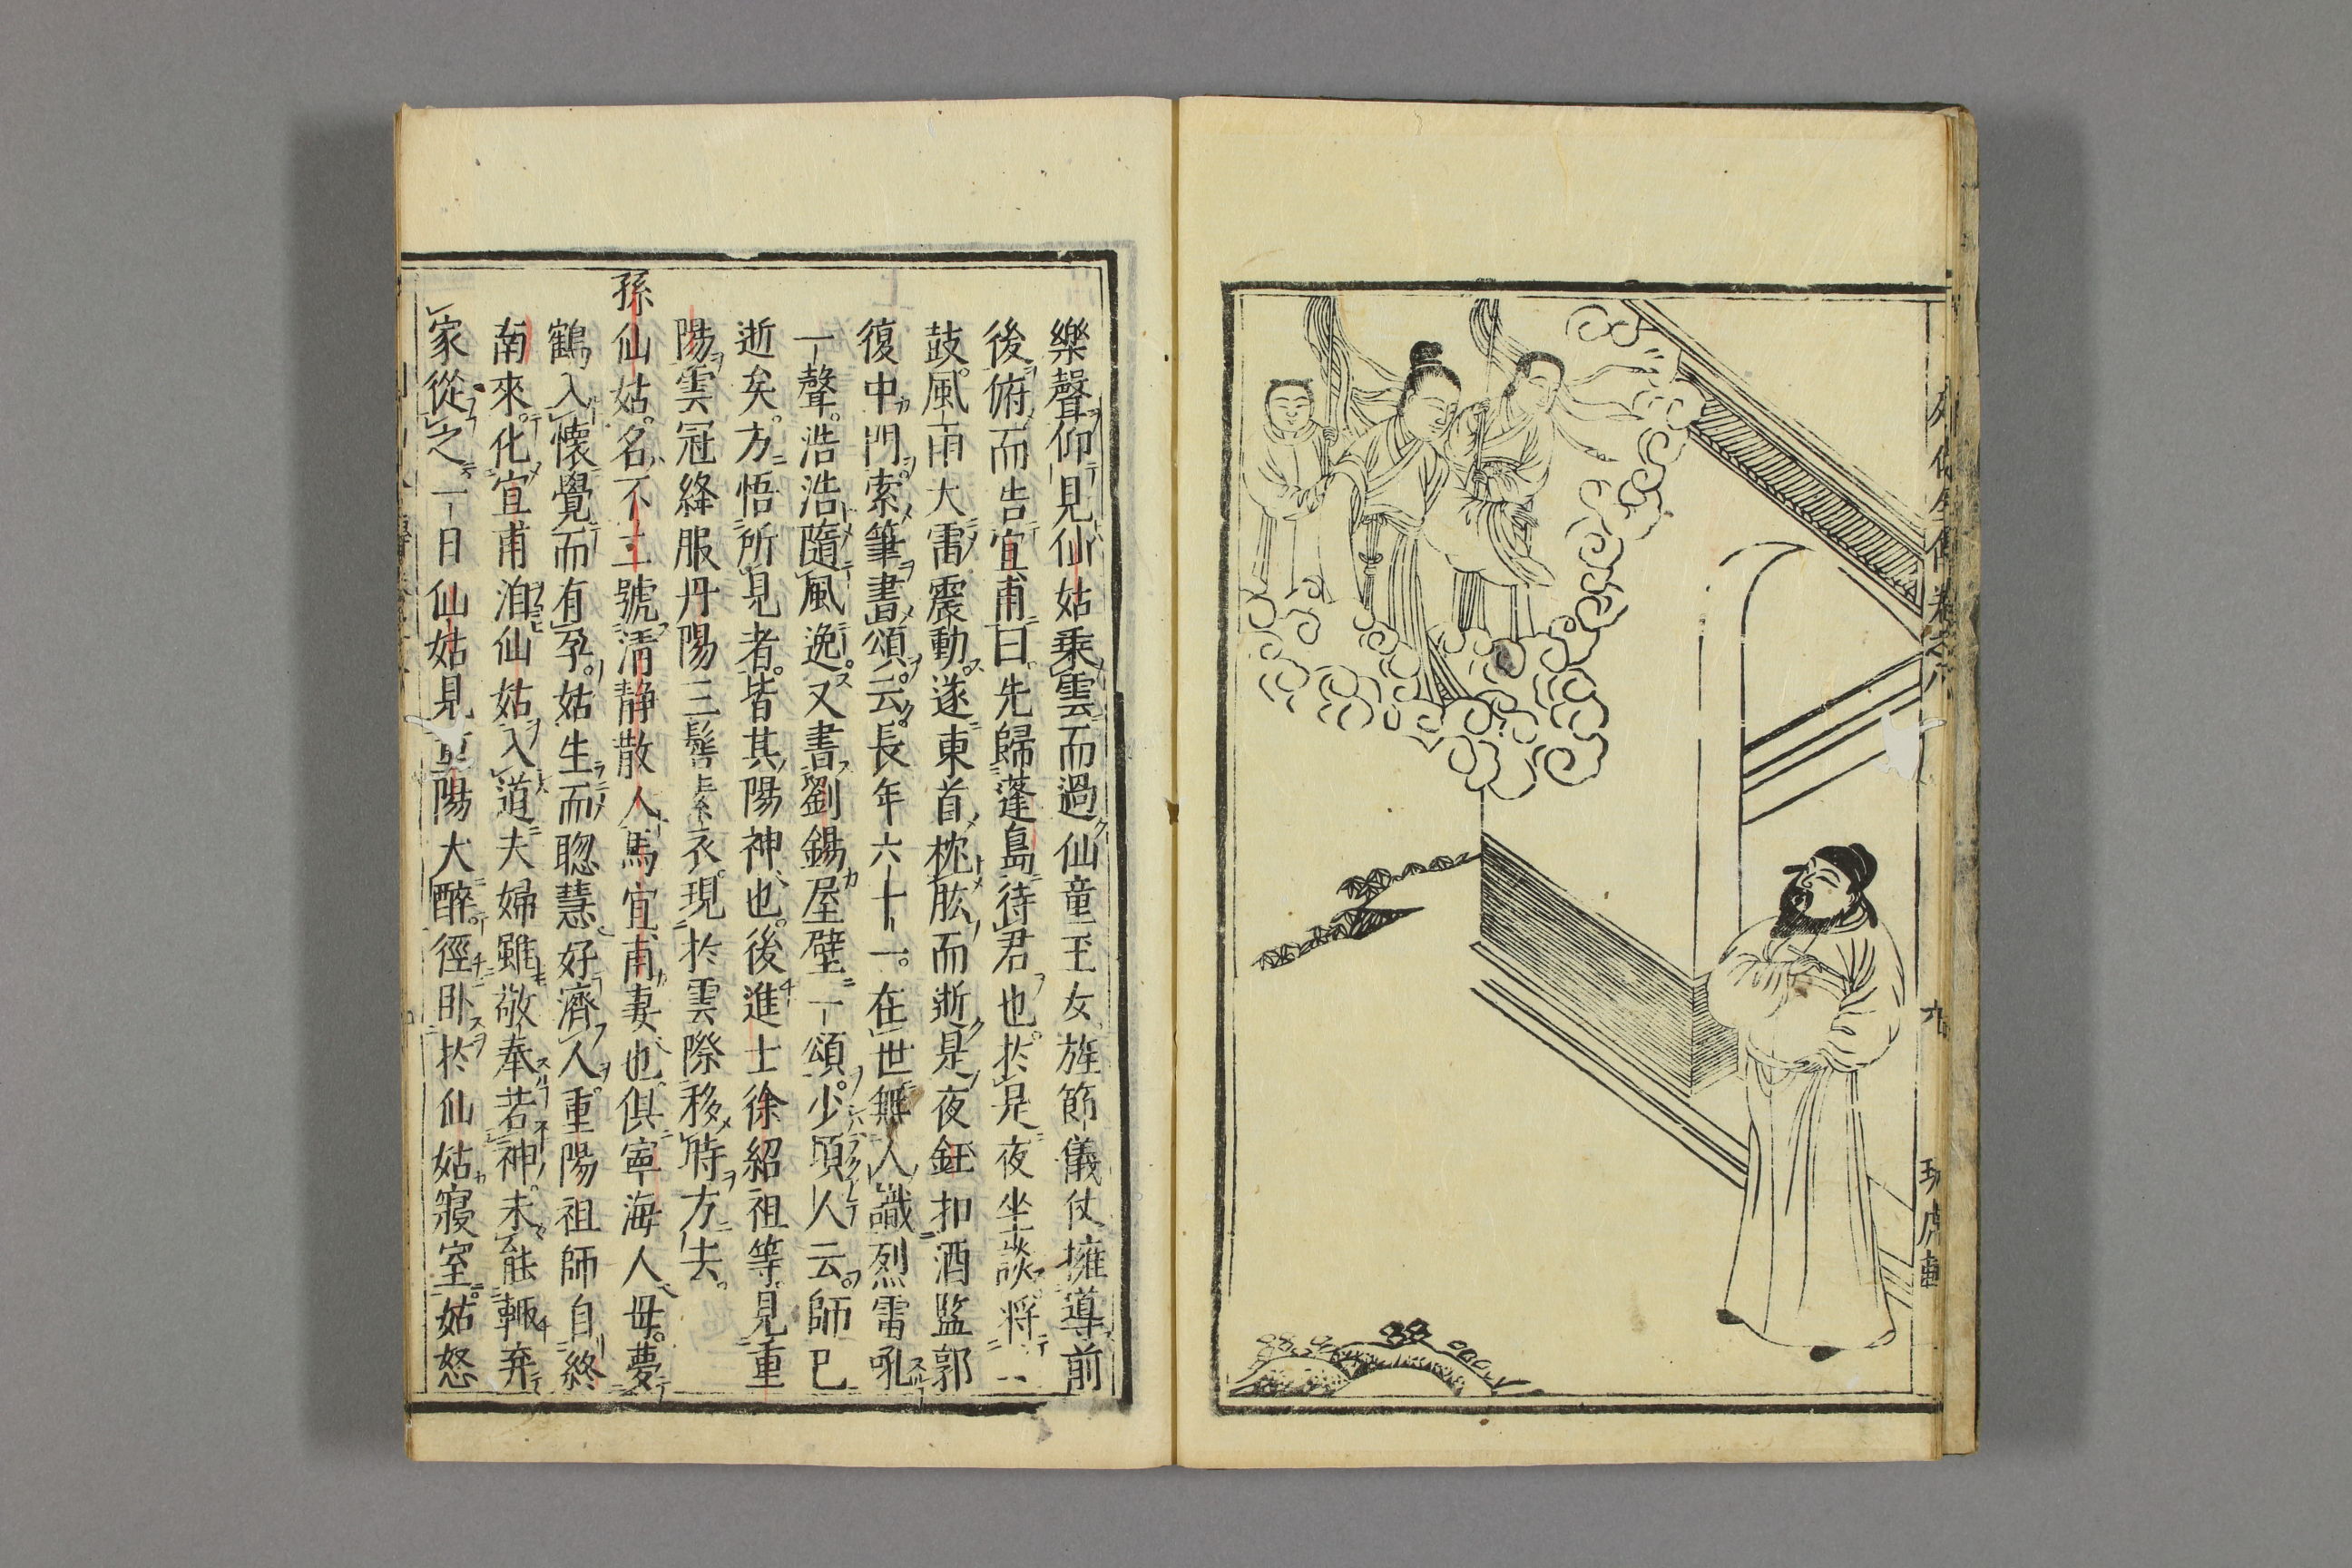 列仙全傳 卷之八
九
玩虎軒
樂聲仰見仙姑乘雲而過仙童玉女旌節儀仗擁導前
後俯而告宜甫曰先歸蓬島待君也於是夜坐談將二
鼓風雨大雷震動遂東首枕肱而逝是夜鉦扣酒監郭
復中門索筆書頌云長年六十一在世無人識烈雷吼
一聲浩浩隨風逸又書劉錫屋壁一頌少頃人云師已
逝矣方悟所見者皆其陽神也後進士徐紹祖等見重
陽雲冠絳服丹陽三髻素衣現於雲際移時方去
孫仙姑名不二號清静散人馬宜甫妻也俱寧海人母夢
鶴入懷覺而有孕姑生而聰慧好濟人重陽祖師自終
南來化宜甫洎仙姑入道夫婦雖敬奉若神未能輒弃
家從之一日仙姑見重陽大醉徑卧於仙姑寢室姑怒